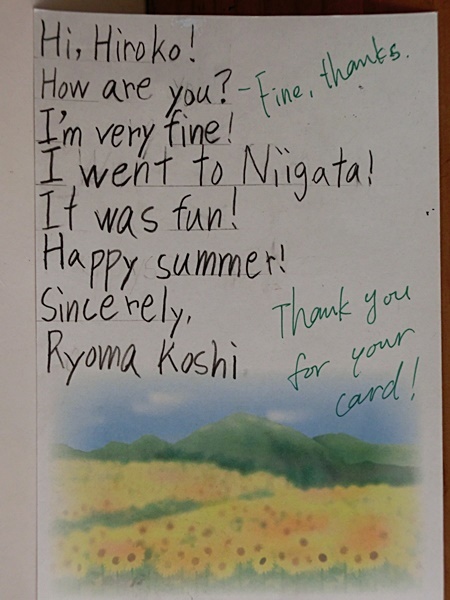 Hi, Hiroko!
How are you? - Fine, thanks.
I'm very fine!
I went to Niigata!
It was fun!
Happy summer!
Sincerely,
Ryoma Koshi
Thank you
for your
card!